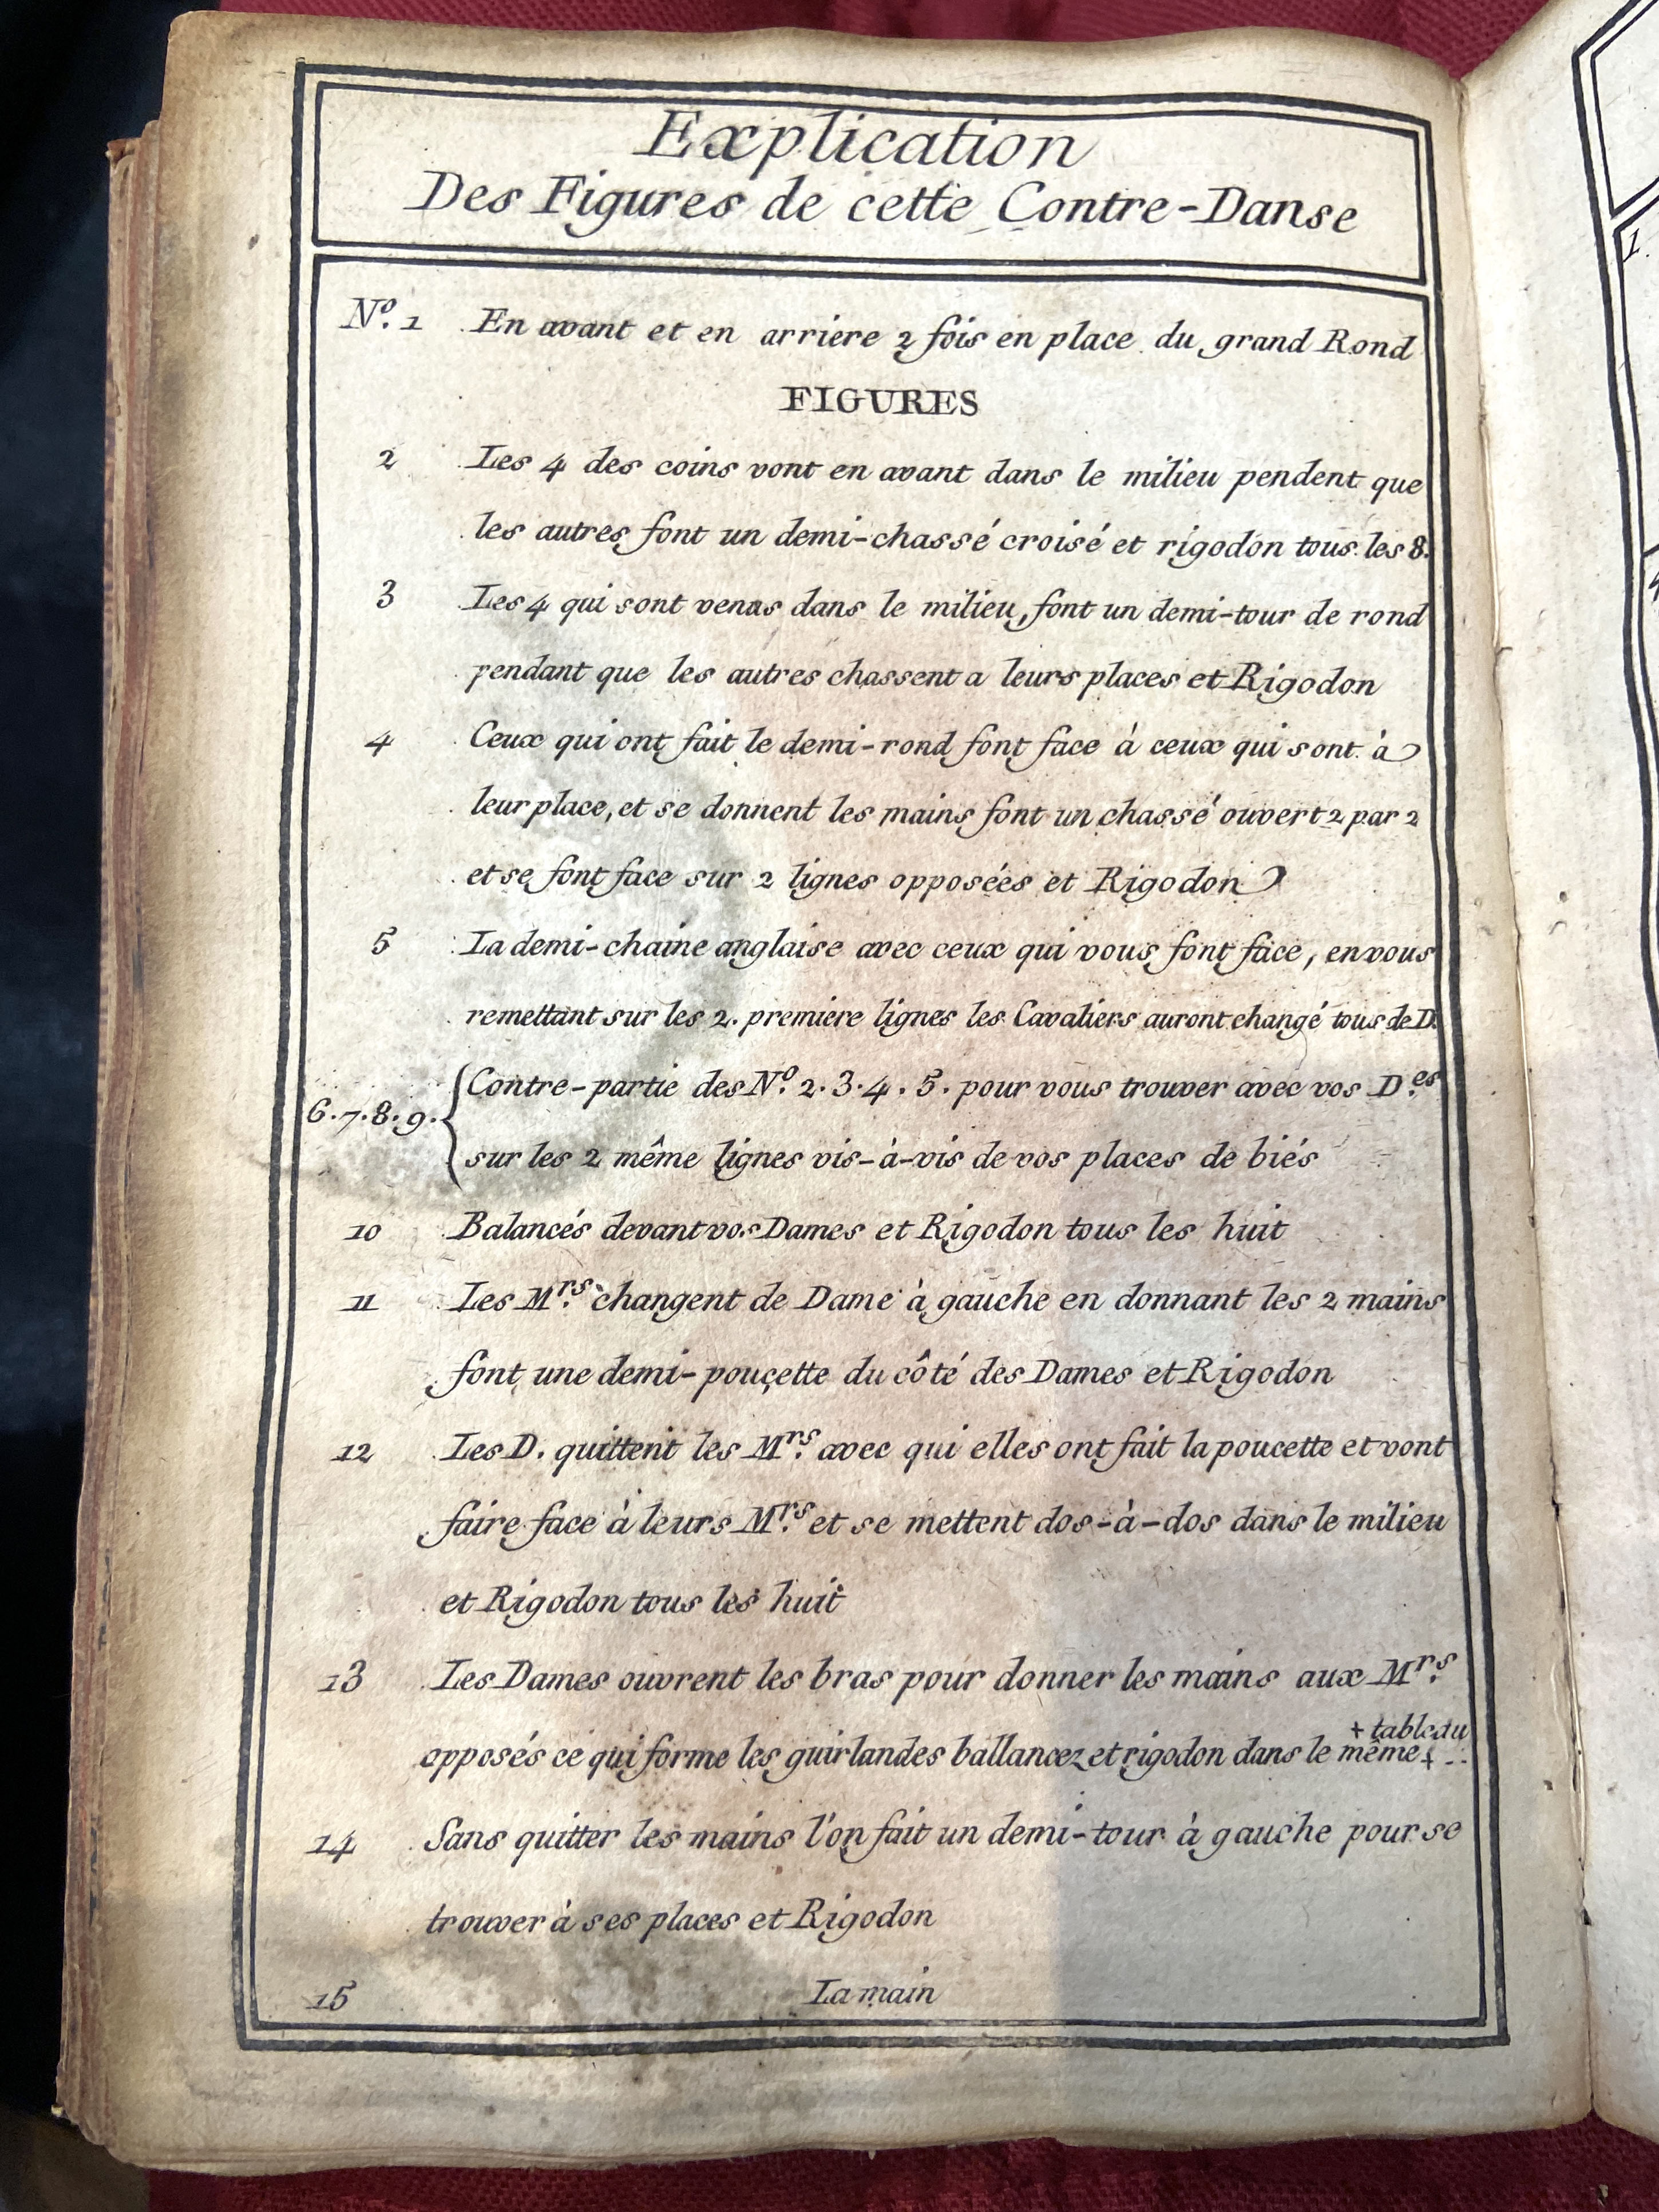 Explication
Des Figures de cette Contre-Danse
Nº. 1 En avant et en arriere 2 fois en place du grand Rond
FIGURES
2 Les 4 des coins vont en avant dans le milieu pendent que
les autres font un demi-chassé croisé et rigodon tous les 8.
3 Les 4 qui sont venus dans le milieu, font un demi-tour de rond
pendant que les autres chassent a leurs places et Rigodon
4 Ceux qui ont fait le demi-rond font face à ceux qui sont à
leur place, et se donnent les mains font un chassé ouvert 2 par 2
et se font face sur 2 lignes opposées et Rigodon
5 La demi-chaine anglaise avec ceux qui vous font face, en vous
remettant sur les 2. premiere lignes les Cavaliers auront changé tous de D.
6.7.8.9. Contre-partie des Nº. 2.3.4.5. pour vous trouver avec vos D.es
sur les 2 même lignes vis-à-vis de vos places de biés
10 Balancés devant vos Dames et Rigodon tous les huit
11 Les Mrs. changent de Dame à gauche en donnant les 2 mains
font une demi-pouçette du côté des Dames et Rigodon
12 Les D. quittent les Mrs. avec qui elles ont fait la poucette et vont
faire face à leurs Mrs. et se mettent dos-à-dos dans le milieu
et Rigodon tous les huit
13 Les Dames ouvrent les bras pour donner les mains aux Mrs.
+ tableau
opposés ce qui forme les guirlandes ballancez et rigodon dans le même +
14 Sans quitter les mains l'on fait un demi-tour à gauche pour se
trouver à ses places et Rigodon
15 La main
1.